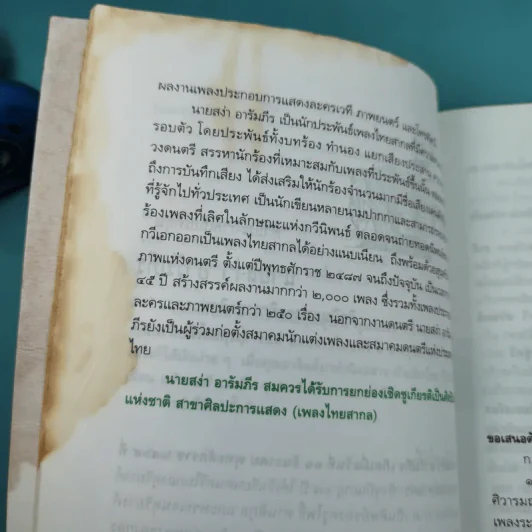 ผลงานเพลงประกอบการแสดงละครเวที ภาพยนตร์ และโทรทัศน์
นายสง่า อารัมภีร เป็นนักประพันธ์เพลงไทยสากลที่มีความ
รอบตัว โดยประพันธ์ทั้งบทร้อง ทำนอง แยกเสียงประสาน
วงดนตรี สรรหานักร้องที่เหมาะสมกับเพลงที่ประพันธ์ขึ้นนั้น
ถึงการบันทึกเสียง ได้ส่งเสริมให้นักร้องจำนวนมากมีชื่อเสียง
ที่รู้จักไปทั่วประเทศ เป็นนักเขียนหลายนามปากกาและสามารถ
ร้องเพลงที่เลิศในลักษณะแห่งกวีนิพนธ์ ตลอดจนถ่ายทอด
กวีเอกออกเป็นเพลงไทยสากลได้อย่างแนบเนียน ถึงพร้อมด้วย
ภาพแห่งดนตรี ตั้งแต่ปีพุทธศักราช ๒๔๘๗ จนถึงปัจจุบัน เป็นเวลา
๔๕ ปี สร้างสรรค์ผลงานมากกว่า ๒,๐๐๐ เพลง ซึ่งรวมทั้งเพลงประกอบ
ละครและภาพยนตร์กว่า ๒๕๐ เรื่อง นอกจากงานดนตรี นายสง่า
ภีรยังเป็นผู้ร่วมก่อตั้งสมาคมนักแต่งเพลงและสมาคมดนตรีแห่งประเทศ
ไทย
นายสง่า อารัมภีร สมควรได้รับการยกย่องเชิดชูเกียรติเป็นศิลปิน
แห่งชาติ สาขาศิลปะการแสดง (เพลงไทยสากล)
ขอเสนอ
ก
๑
ศิวารมณ์
เพลงระ